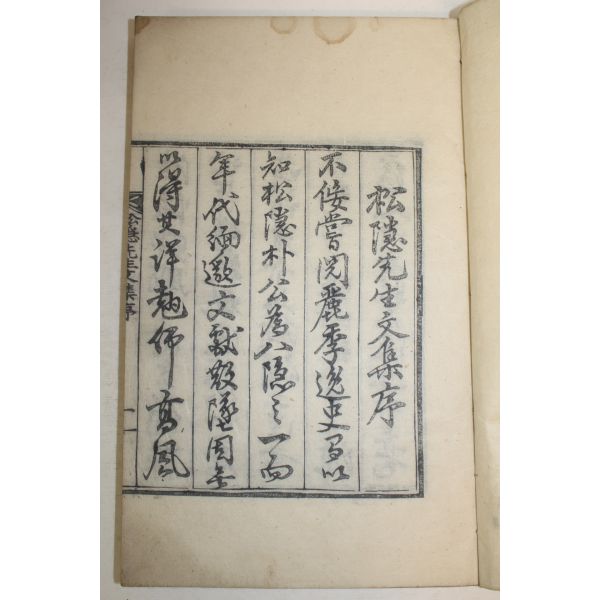 松隱先生文集序
不佞嘗閱麗季逸史有以
知松隱朴公爲八隱之一而
年代緬邈文獻散墜固無
以得其詳勉師高風
松隱先生文集序
一